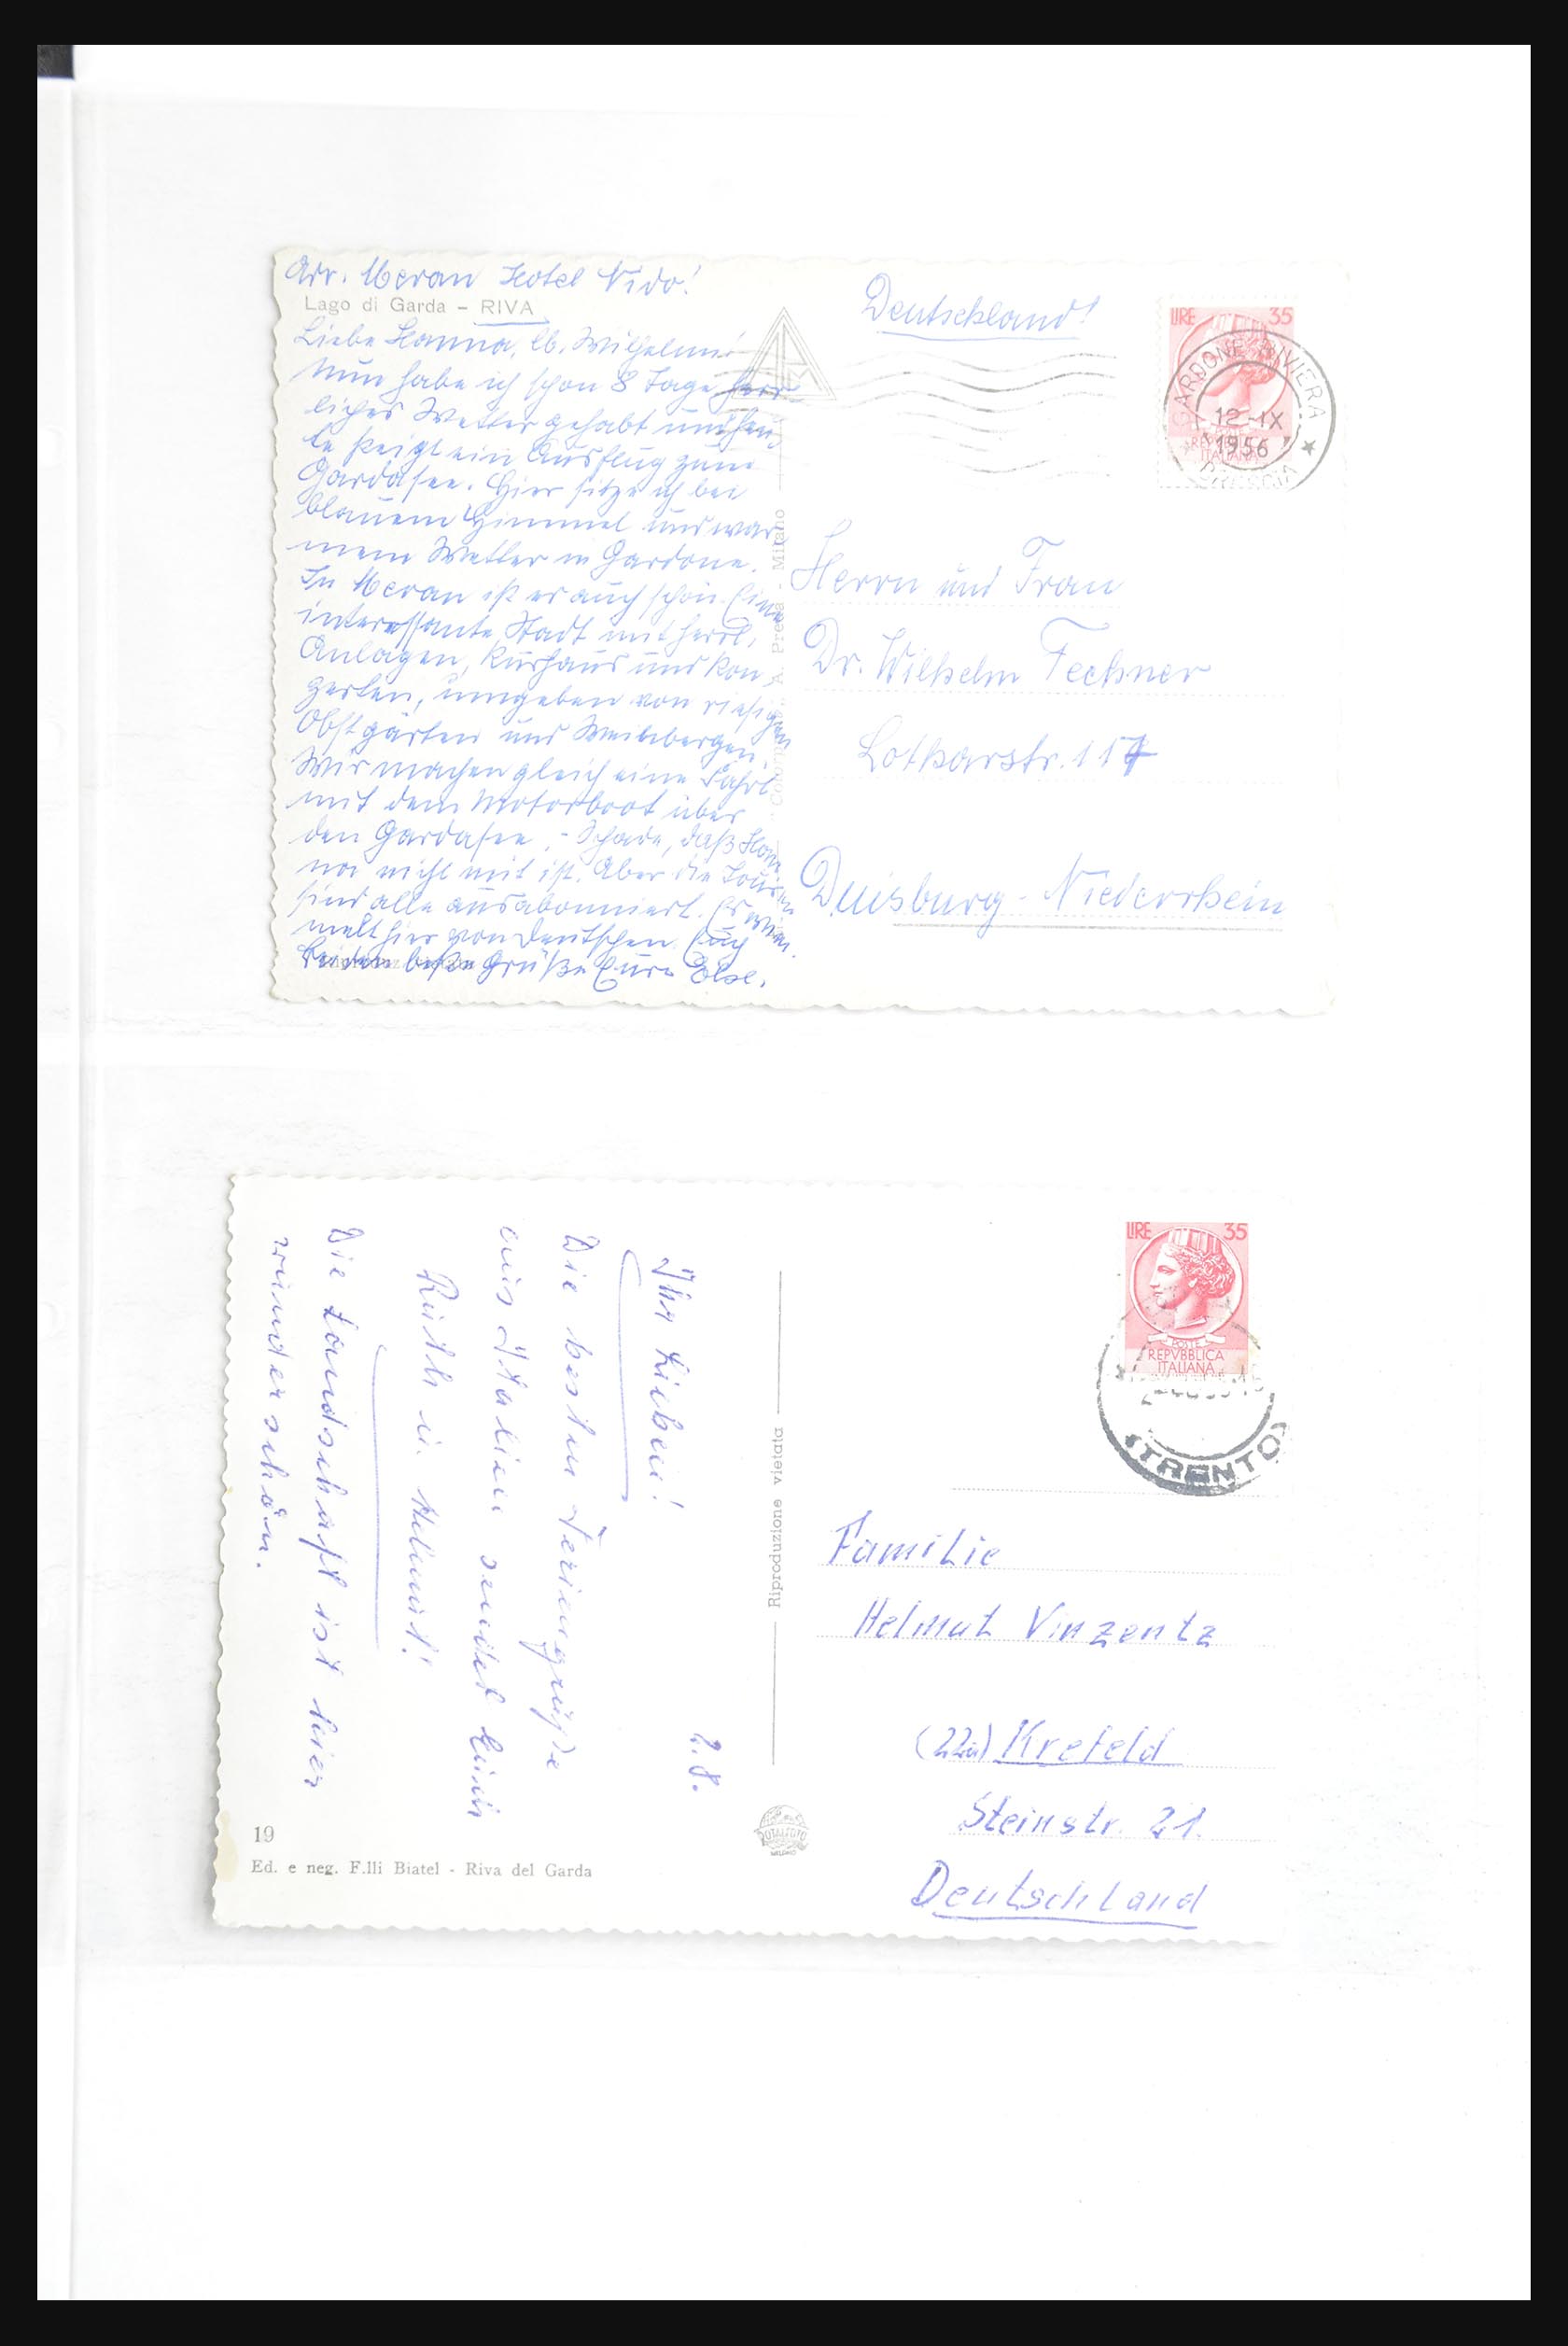 Adr. Meran Hotel Nido!
Lago di Garda – RIVA
Liebe Hanna, lb. Wilhelm!
Nun habe ich schon 8 Tage herr
liches Wetter gehabt und heu
te steigt ein Ausflug zum
Gardasee. Hier sitze ich bei
blauem Himmel und war
mem Wetter in Gardone.
In Meran ist es auch schön. Eine
interessante Stadt mit herrl.
Anlagen, Kurhaus und Kon
zerten, umgeben von riesigen
Obstgärten und Weinbergen.
Wir machen gleich eine Fahrt
mit dem Motorboot über
den Gardasee. – Schade, daß Han
na nicht mit ist. Aber die Touren
sind alle ausabonniert. Es wim
melt hier von Deutschen. Euch
beiden beste Grüße Eure Else.
A. Preda - Milano
Deutschland!
LIRE 35
GARDONE RIVIERA
12-IX
1956
ITALIANA
Herrn und Frau
Dr. Wilhelm Fechner
Lotharstr. 117
Duisburg-Niederrhein
2.8.
Ihr Lieben!
Die besten Feriengrüße
aus Italien sendet Euch
Ruth u. Helmut!
Die Landschaft ist hier
wunderschön.
19
Ed. e neg. F.lli Biatel - Riva del Garda
Riproduzione vietata
LIRE 35
POSTE
REPVBBLICA
ITALIANA
(TRENTO)
Familie
Helmut Vinzentz
(22a) Krefeld
Steinstr. 21.
Deutschland